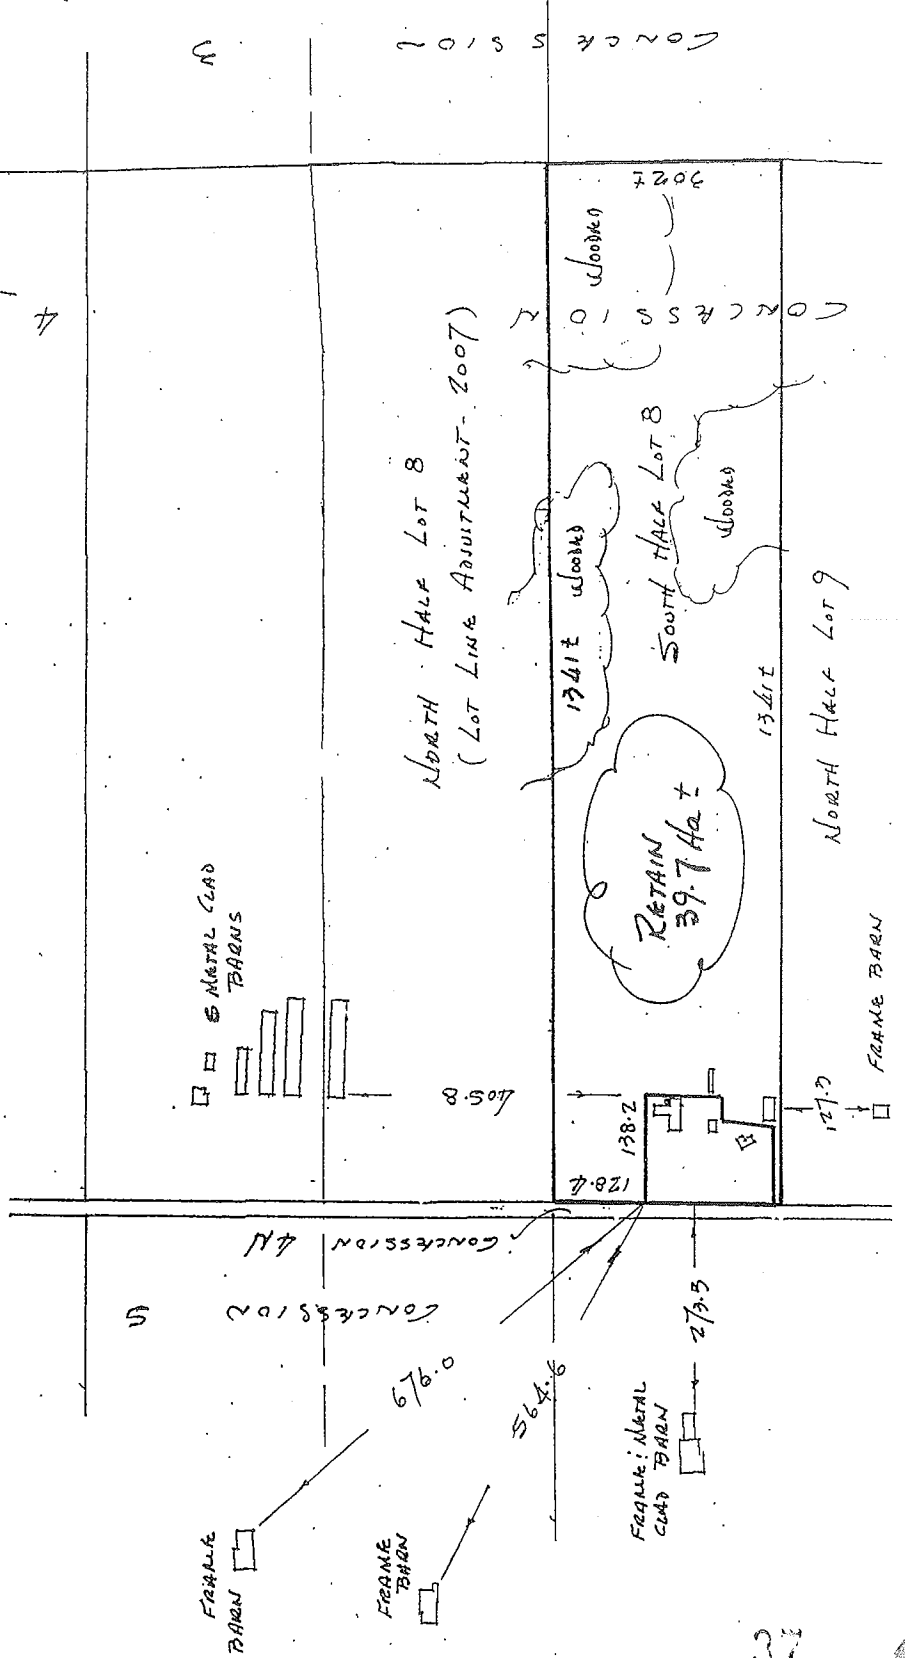 CONCESSION 3
4
CONCESSION
302±
WOODED
NORTH HALF LOT 8
(LOT LINE ADJUSTMENT - 2007)
SOUTH HALF LOT 8
WOODED
WOODED
1341±
1341±
NORTH HALF LOT 9
RETAIN
39.7 Ha ±
6 METAL CLAD
BARNS
405.8
138.2
128.4
127.3
FRAME BARN
CONCESSION 4N
CONCESSION 5
676.0
564.6
273.5
FRAME & METAL
CLAD BARN
FRAME
BARN
FRAME
BARN